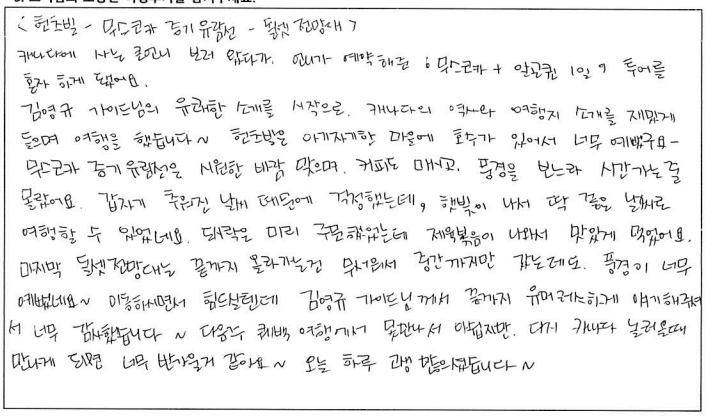 < 헌츠빌 - 무스코카 증기 유람선 - 돌셋 전망대 >
캐나다에 사는 큰언니 보러 왔다가. 언니가 예약해준 '무스코카 + 알곤퀸 1일' 투어를
혼자 하게 됐어요.
김영규 가이드님의 유쾌한 소개를 시작으로. 캐나다의 역사와 여행지 소개를 재밌게
들으며 여행을 했습니다~ 헌츠빌은 아기자기한 마을에 호수가 있어서 너무 예뻤구요-
무스코카 증기 유람선은 시원한 바람 맞으며. 커피도 마시고. 풍경을 보느라 시간가는줄
몰랐어요. 갑자기 추워진 날씨 때문에 걱정했는데, 햇빛이 나서 딱 좋은 날씨로
여행할 수 있었네요. 도시락은 미리 주문했었는데 제육볶음이 나와서 맛있게 먹었어요.
마지막 돌셋전망대는 끝까지 올라가는건 무서워서 중간까지만 갔는데도. 풍경이 너무
예뻤네요~ 이동하시면서 힘드실텐데 김영규 가이드님께서 끝까지 유머러스하게 얘기해주셔
서 너무 감사했습니다 ~ 다음주 퀘백 여행에서 못만나서 아쉽지만. 다시 캐나다 놀러올때
만나게 되면 너무 반가울거 같아요~ 오늘 하루 고생 많으셨습니다~